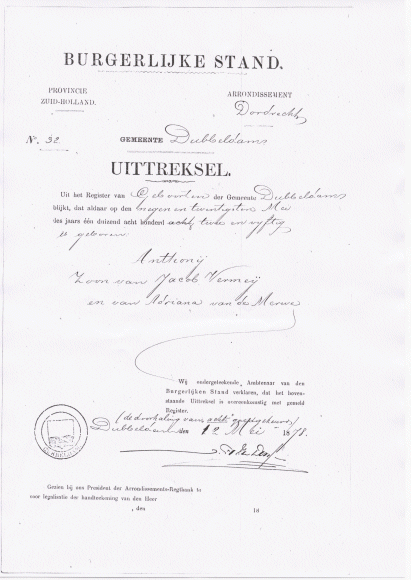 BURGERLIJKE STAND.
PROVINCIE
ZUID-HOLLAND.
ARRONDISSEMENT
Dordrecht
No. 32
GEMEENTE Dubbeldam
UITTREKSEL.
Uit het Register van Geboorten der Gemeente Dubbeldam
blijkt, dat aldaar op den negen en twintigsten Mei
des jaars één duizend acht honderd acht twee en vyftig
is geboren
Anthonij
Zoon van Jacob Vermeij
en van Adriana van de Merwe
Wij ondergeteekende, Ambtenaar van den
Burgerlijken Stand verklaren, dat het boven-
staande Uittreksel is overeenkomstig met gemeld
Register.
(de doorhaling van "acht" goedgekeurd)
Dubbeldam den 12 Mei 1878.
Gezien bij ons President der Arrondissements-Regtbank te
voor legalisatie der handteekening van den Heer
, den 18